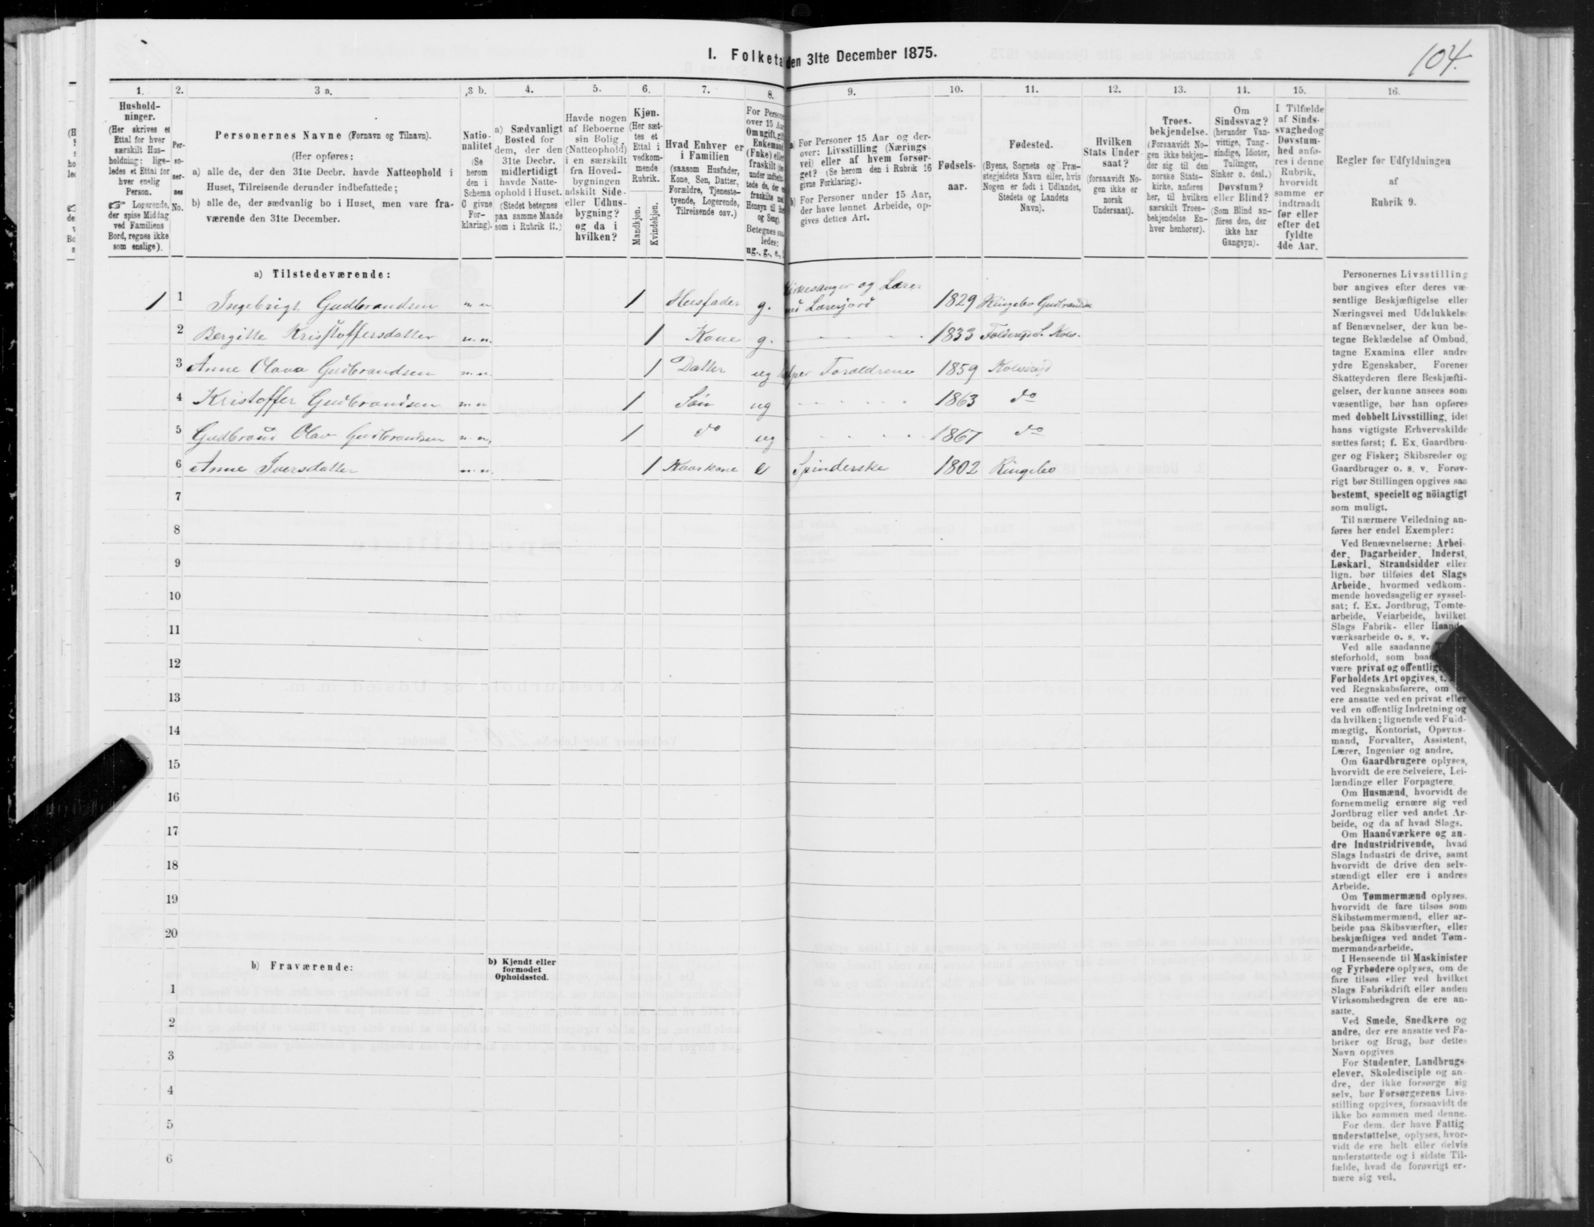 I. Folketa
den 31te December 1875.
104.
1.
2.
3 a.
3 b.
4.
5.
6.
7.
8.
9.
10.
11.
12.
13.
14.
15.
16.
Hushold-
ninger.
(Her skrives et
Ettal for hver
særskilt Hus-
holdning; lige-
ledes et Ettal for
hver enslig
Person.
☞ Logerende,
der spise Middag
ved Familiens
Bord, regnes ikke
som enslige).
Per-
so-
ner-
nes
No.
Personernes Navne (Fornavn og Tilnavn).
(Her opføres:
a) alle de, der den 31te Decbr. havde Natteophold i
Huset, Tilreisende derunder indbefattede;
b) alle de, der sædvanlig bo i Huset, men vare fra-
værende den 31te December.
Natio-
nalitet
(Se
herom
den i
Schema
C givne
For-
klaring).
a) Sædvanligt
Bosted for
dem, der den
31te Decbr.
midlertidigt
havde Natte-
ophold i Huset.
(Stedet betegnes
paa samme Maade
som i Rubrik 11.)
Havde nogen
af Beboerne
sin Bolig
(Natteophold)
i en særskilt
fra Hoved-
bygningen
adskilt Side-
eller Udhus-
bygning?
og da i
hvilken?
Kjøn.
(Her sæt-
tes et
Ettal i
vedkom-
mende
Rubrik.
Mandkjøn.
Kvindekjøn.
Hvad Enhver er
i Familien
(saasom Husfader,
Kone, Søn, Datter,
Forældre, Tjeneste-
tyende, Logerende,
Tilreisende osv.)
For Perso
over 15 Aa
Om ugift, gi
Enkeman
(Enke) elle
fraskilt
Betegnes saa
ledes:
ug., g., e.,
For Personer 15 Aar og der-
over: Livsstilling (Nærings-
vei) eller af hvem forsør-
get? (Se herom den i Rubrik 16
givne Forklaring).
For Personer under 15 Aar,
der have lønnet Arbeide, op-
gives dettes Art.
Fødsels-
aar.
Fødested.
(Byens, Sognets og Præ-
stegjeldets Navn eller, hvis
Nogen er født i Udlandet,
Stedets og Landets
Navn).
Hvilken
Stats Under
saat?
(forsaavidt No-
gen ikke er
norsk
Undersaat).
Troes-
bekjendelse.
(Forsaavidt No-
gen ikke bekjen-
der sig til den
norske Stats-
kirke, anføres
her, til hvilken
særskilt Troes-
bekjendelse En-
hver henhører).
Om
Sindssvag?
(herunder Van-
vittige, Tung-
sindige, Idioter,
Tullinger,
Sinker o. desl.)
Døvstum?
eller Blind?
(Som Blind an-
føres den, der
ikke har
Gangsyn).
I Tilfælde
af Sinds-
svaghed og
Døvstum-
hed anfø-
res i denne
Rubrik,
hvorvidt
samme er
indtraadt
før eller
efter det
fyldte
4de Aar.
Regler før Udfyldningen
af
Rubrik 9.
a) Tilstedeværende:
1 1 Ingebrigt Gudbrandsen n. n. 1 Husfader g. Kirkesanger og Lærer
med Lærerjord 1829 Ringebo Gudbrandsd
2 Bergitte Kristoffersdatter n. n. 1 Kone g. 1833
3 Anne Olava Gudbrandsen n. n. 1 Datter ug Forældrene 1859
4 Kristoffer Gudbrandsen n. n. 1 Søn ug 1863 do
5 Gudbrand Olav Gudbrandsen n. n. 1 do ug 1867 do
6 Anne Iversdatter n. n. 1 Kaarkone e Spinderske 1802 Ringebo
7
8
9
10
11
12
13
14
15
16
17
18
19
20
b) Fraværende:
b) Kjendt eller
formodet
Opholdssted.
1
2
3
4
5
6
Personernes Livsstilling
bør angives efter deres væ-
sentlige Beskjæftigelse eller
Næringsvei med Udelukkelse
af Benævnelser, der kun be-
tegne Beklædelse af Ombud,
tagne Examina eller andre
ydre Egenskaber. Forener
Skatteyderen flere Beskjæfti-
gelser, der kunne ansees som
væsentlige, bør han opføres
med dobbelt Livsstilling, idet
hans vigtigste Erhvervskilde
sættes først; f. Ex. Gaardbru-
ger og Fisker; Skibsreder og
Gaardbruger o. s. v. Forøv-
rigt bør Stillingen opgives saa
bestemt, specielt og nøiagtigt
som muligt.
Til nærmere Veiledning an-
føres her endel Exempler:
Ved Benævnelserne: Arbei-
der, Dagarbeider, Inderst,
Løskarl, Strandsidder eller
lign. bør tilføies det Slags
Arbeide, hvormed vedkom-
mende hovedsagelig er syssel-
sat; f. Ex. Jordbrug, Tomte-
arbeide, Veiarbeide, hvilket
Slags Fabrik- eller Haand-
værksarbeide o. s. v.
Ved alle saadanne
steforhold, som baa
være privat og offentlig
Forholdets Art opgives, t.
ved Regnskabsførere, om
ere ansatte ved en privat eller
ved en offentlig Indretning og
da hvilken; lignende ved Fuld-
mægtig, Kontorist, Opsyns-
mand, Forvalter, Assistent,
Lærer, Ingeniør og andre.
Om Gaardbrugere oplyses,
hvorvidt de ere Selveiere, Lei-
lændinge eller Forpagtere.
Om Husmænd, hvorvidt de
fornemmelig ernære sig ved
Jordbrug eller ved andet Ar-
beide, og da af hvad Slags.
Om Haandværkere og an-
dre Industridrivende, hvad
Slags Industri de drive, samt
hvorvidt de drive den selv-
stændigt eller ere i andres
Arbeide.
Om Tømmermænd oplyses,
hvorvidt de fare tilsøs som
Skibstømmermænd, eller ar-
beide paa Skibsværfter, eller
beskjæftiges ved andet Tøm-
mermandsarbeide.
I Henseende til Maskinister
og Fyrbødere oplyses, om de
fare tilsøs eller ved hvilket
Slags Fabrikdrift eller anden
Virksomhedsgren de ere an-
satte.
Ved Smede, Snedkere og
andre, der ere ansatte ved Fa-
briker og Brug, bør dettes
Navn opgives
For Studenter, Landbrugs-
elever, Skoledisciple og an-
dre, der ikke forsørge sig
selv, bør Forsørgerens Livs-
stilling opgives, forsaavidt de
ikke bo sammen med denne.
For dem, der have Fattig-
understøttelse, oplyses, hvor-
vidt de ere helt eller delvis
understøttede og i sidste Til-
fælde, hvad de forøvrigt er-
nære sig ved.